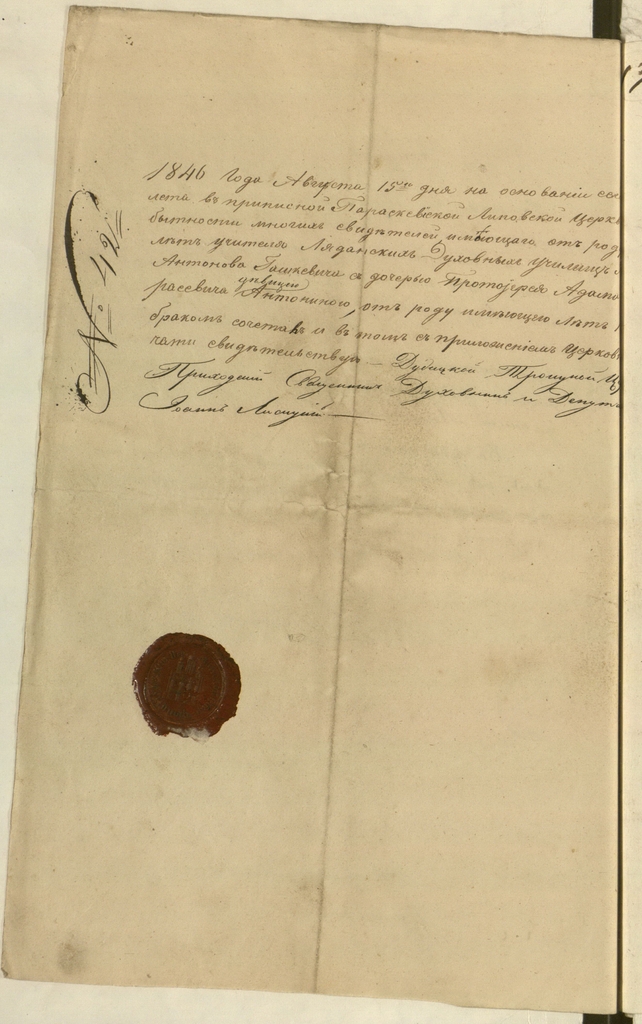 1846 Года Августа 15го дня на основаніи
лета въ приписной Параскевіевской Липовской Церк
бытности многихъ свидѣтелей имѣющаго отъ род
лѣтъ учителя Ляданскихъ Духовныхъ училищъ
Антонова Гашкевича съ дочерью Протоіерея Адама
девицею
расевича Антониною, отъ роду имѣющею лѣтъ
бракомъ сочеталъ и въ томъ съ приложеніемъ Церков
чати свидѣтельствую — Дубицкой Троицкой
Приходскій Священникъ Духовникъ и Депут
Іоаннъ
№ 42